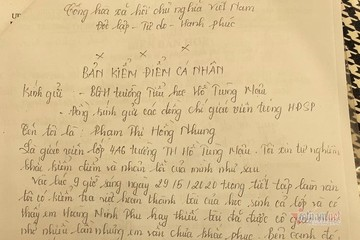 Cộng hòa xã hội chủ nghĩa Việt Nam
Độc lập - Tự do - Hạnh phúc
BẢN KIỂM ĐIỂM CÁ NHÂN
Kính gửi: - BGH trường Tiểu học Hồ Tùng Mậu
- Đồng kính gửi các đồng chí giáo viên trong HĐSP
Tên tôi là: Phạm Thị Hồng Nhung
Là giáo viên lớp 4A6 trường TH Hồ Tùng Mậu. Tôi xin tự nghiêm
khắc kiểm điểm và nhận lỗi của mình như sau:
Vào lúc 9 giờ sáng ngày 29/5/2020 trong tiết tập làm văn
tôi có kiểm tra việc hoàn thành của học sinh cả lớp và có
thấy em Hoàng Minh Phú hay thiếu dù đã được cô giáo
nhở nhiều lần nhưng em vẫn chưa khắc phục. Bên cạnh đó